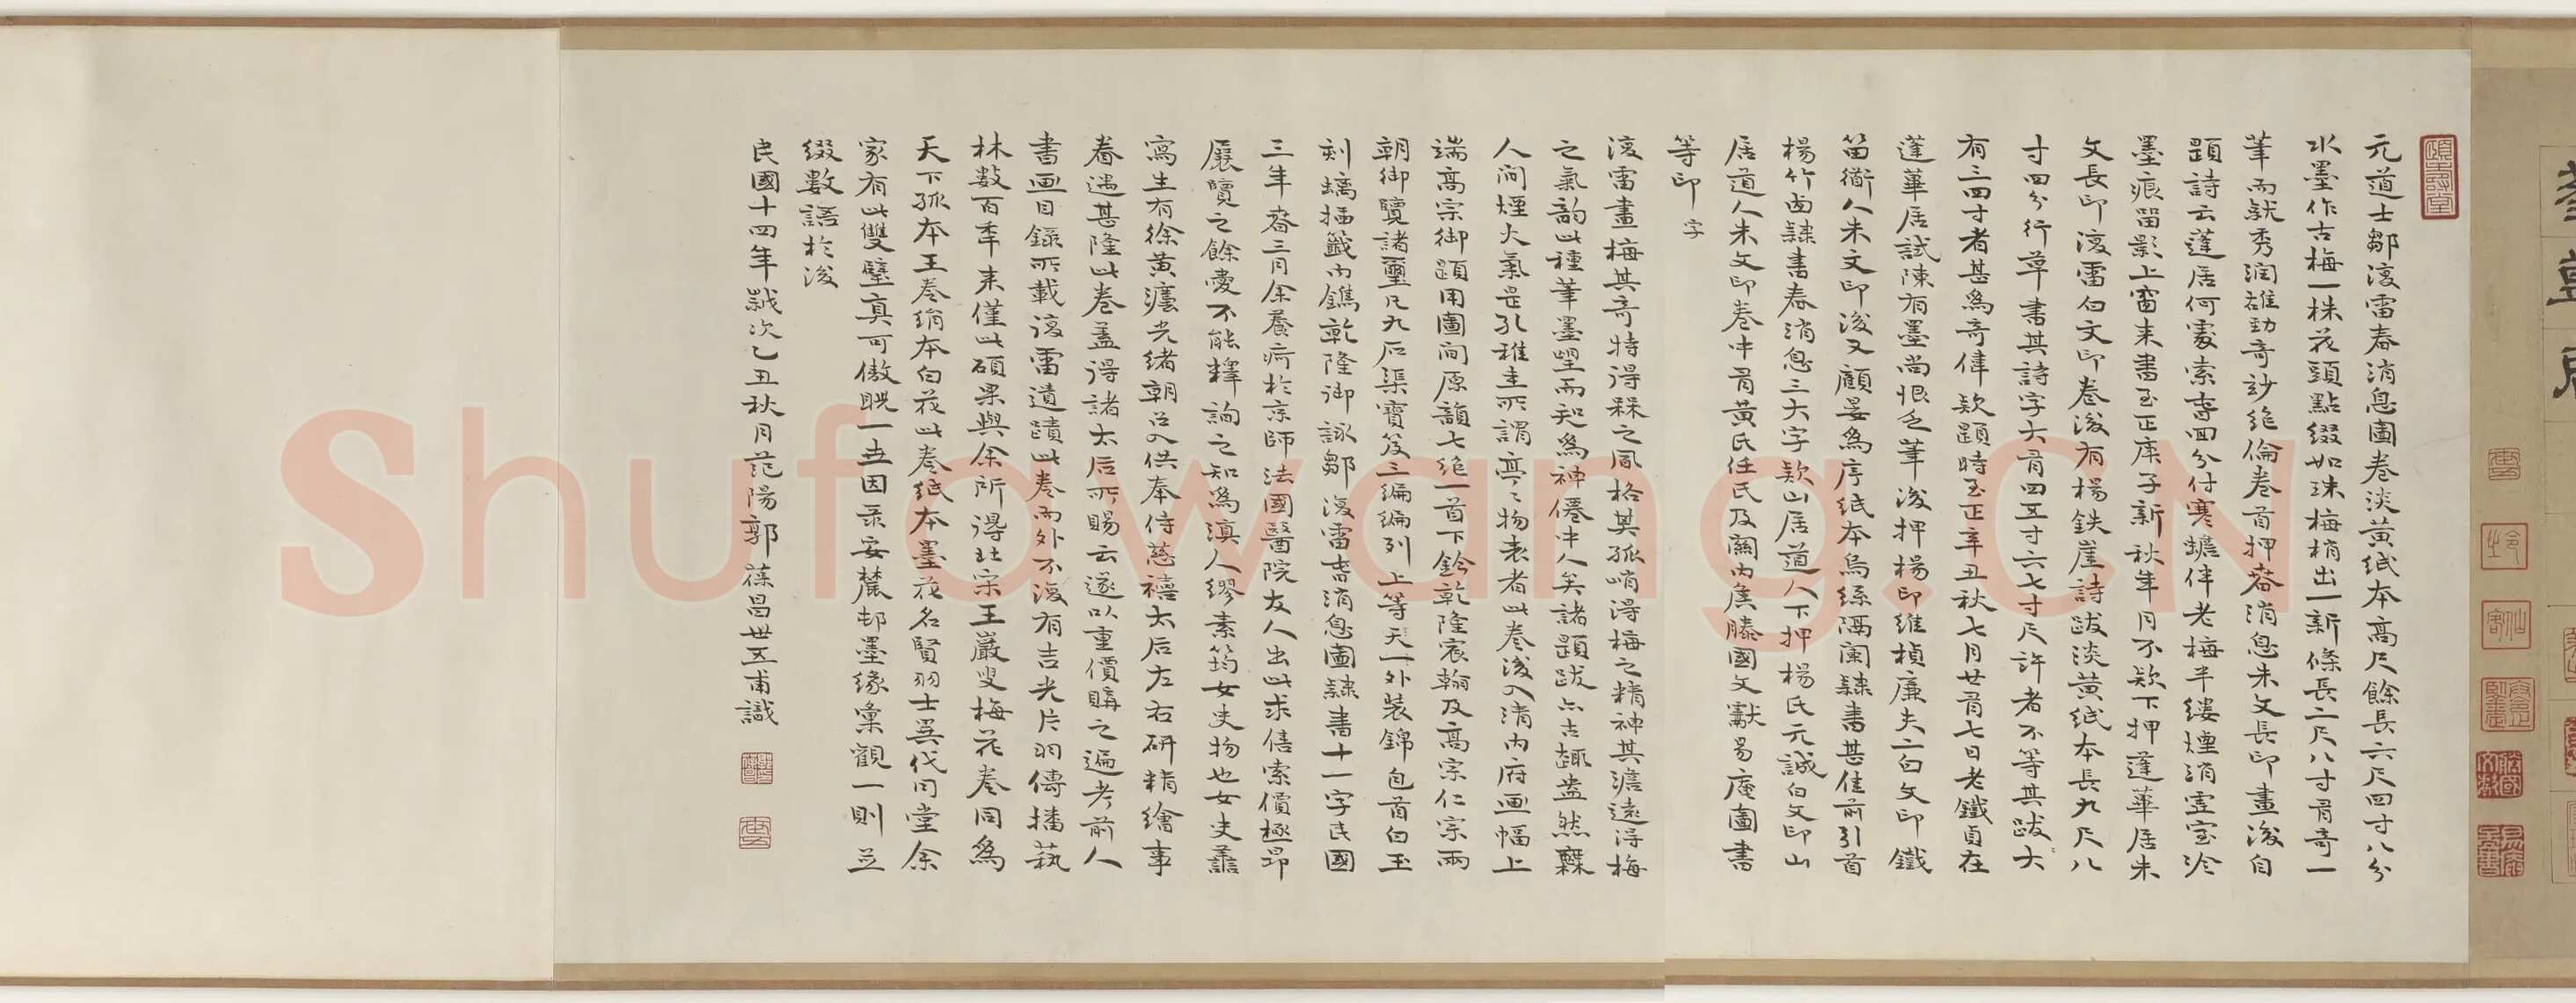 元道士鄒復雷春消息圖卷淡黃紙本高尺餘長六尺四寸八分
水墨作古梅一株花頭點綴如珠梅梢出一新條長二尺八寸有奇一
筆而就秀潤雄勁奇妙絕倫卷首押春消息朱文長印畫後自
題詩云蓬居何處索春回分付寒蟾伴老梅半縷煙消虛室冷
墨痕留影上窗來書至正庚子新秋年月不欵下押蓬華居朱
文長印復雷白文印卷後有楊鉄崖詩跋淡黃紙本長九尺八
寸四分行草書其詩字大有四五寸六七寸尺許者不等其跋大
有三四寸者甚為奇偉欵題時至正辛丑秋七月廿有七日老鐵貞在
蓬華居試陳有墨尚恨乏筆後押楊印維楨廉夫二白文印鐵
笛衜人朱文印後又顧晏為序紙本烏絲隔闌隸書甚佳前引首
楊竹西隸書春消息三大字欵山居道人下押楊氏元誠白文印山
居道人朱文印卷中有黃氏任氏及闗內焦滕國文獻易庵圖書
等印 字
復雷畫梅其奇特得槑之風格其孤峭得梅之精神其澹遠得梅
之氣韵此種筆墨望而知為神僊中人矣諸題跋亦古趣盎然槑
人間煙火氣是孔稚圭所謂亭亭物表者此卷後入清內府画幅上
端高宗御題用圖間原韻七絕一首下鈐乾隆宸翰及高宗仁宗兩
朝御覽諸璽凡九石渠寶笈三編編列上等天一外裝錦包首白玉
刻螭插籤內鐫乾隆御詠鄒復雷春消息圖隸書十一字民國
三年春三月余養疴於京師法國醫院友人出此求售索價極昂
展覽之餘愛不能釋詢之知為滇人繆素筠女史物也女史蘸
寫生有徐黃灋光緒朝召入供奉侍慈禧太后左右研精繪事
眷遇甚隆此卷蓋得諸太后所賜云遂以重價購之遍考前人
書画目錄所載復雷遺蹟此卷而外不復有吉光片羽傳播蓺
林數百年來僅此碩果與余所得北宋王巖叟梅花卷同為
天下孤本王卷絹本白花此卷紙本墨花名賢羽士異代同堂余
家有此雙璧真可傲睨一世因录安麓邨墨緣彙觀一則並
綴數語於後
民國十四年歲次乙丑秋月范陽郭葆昌世五甫識
Shufawang.CN